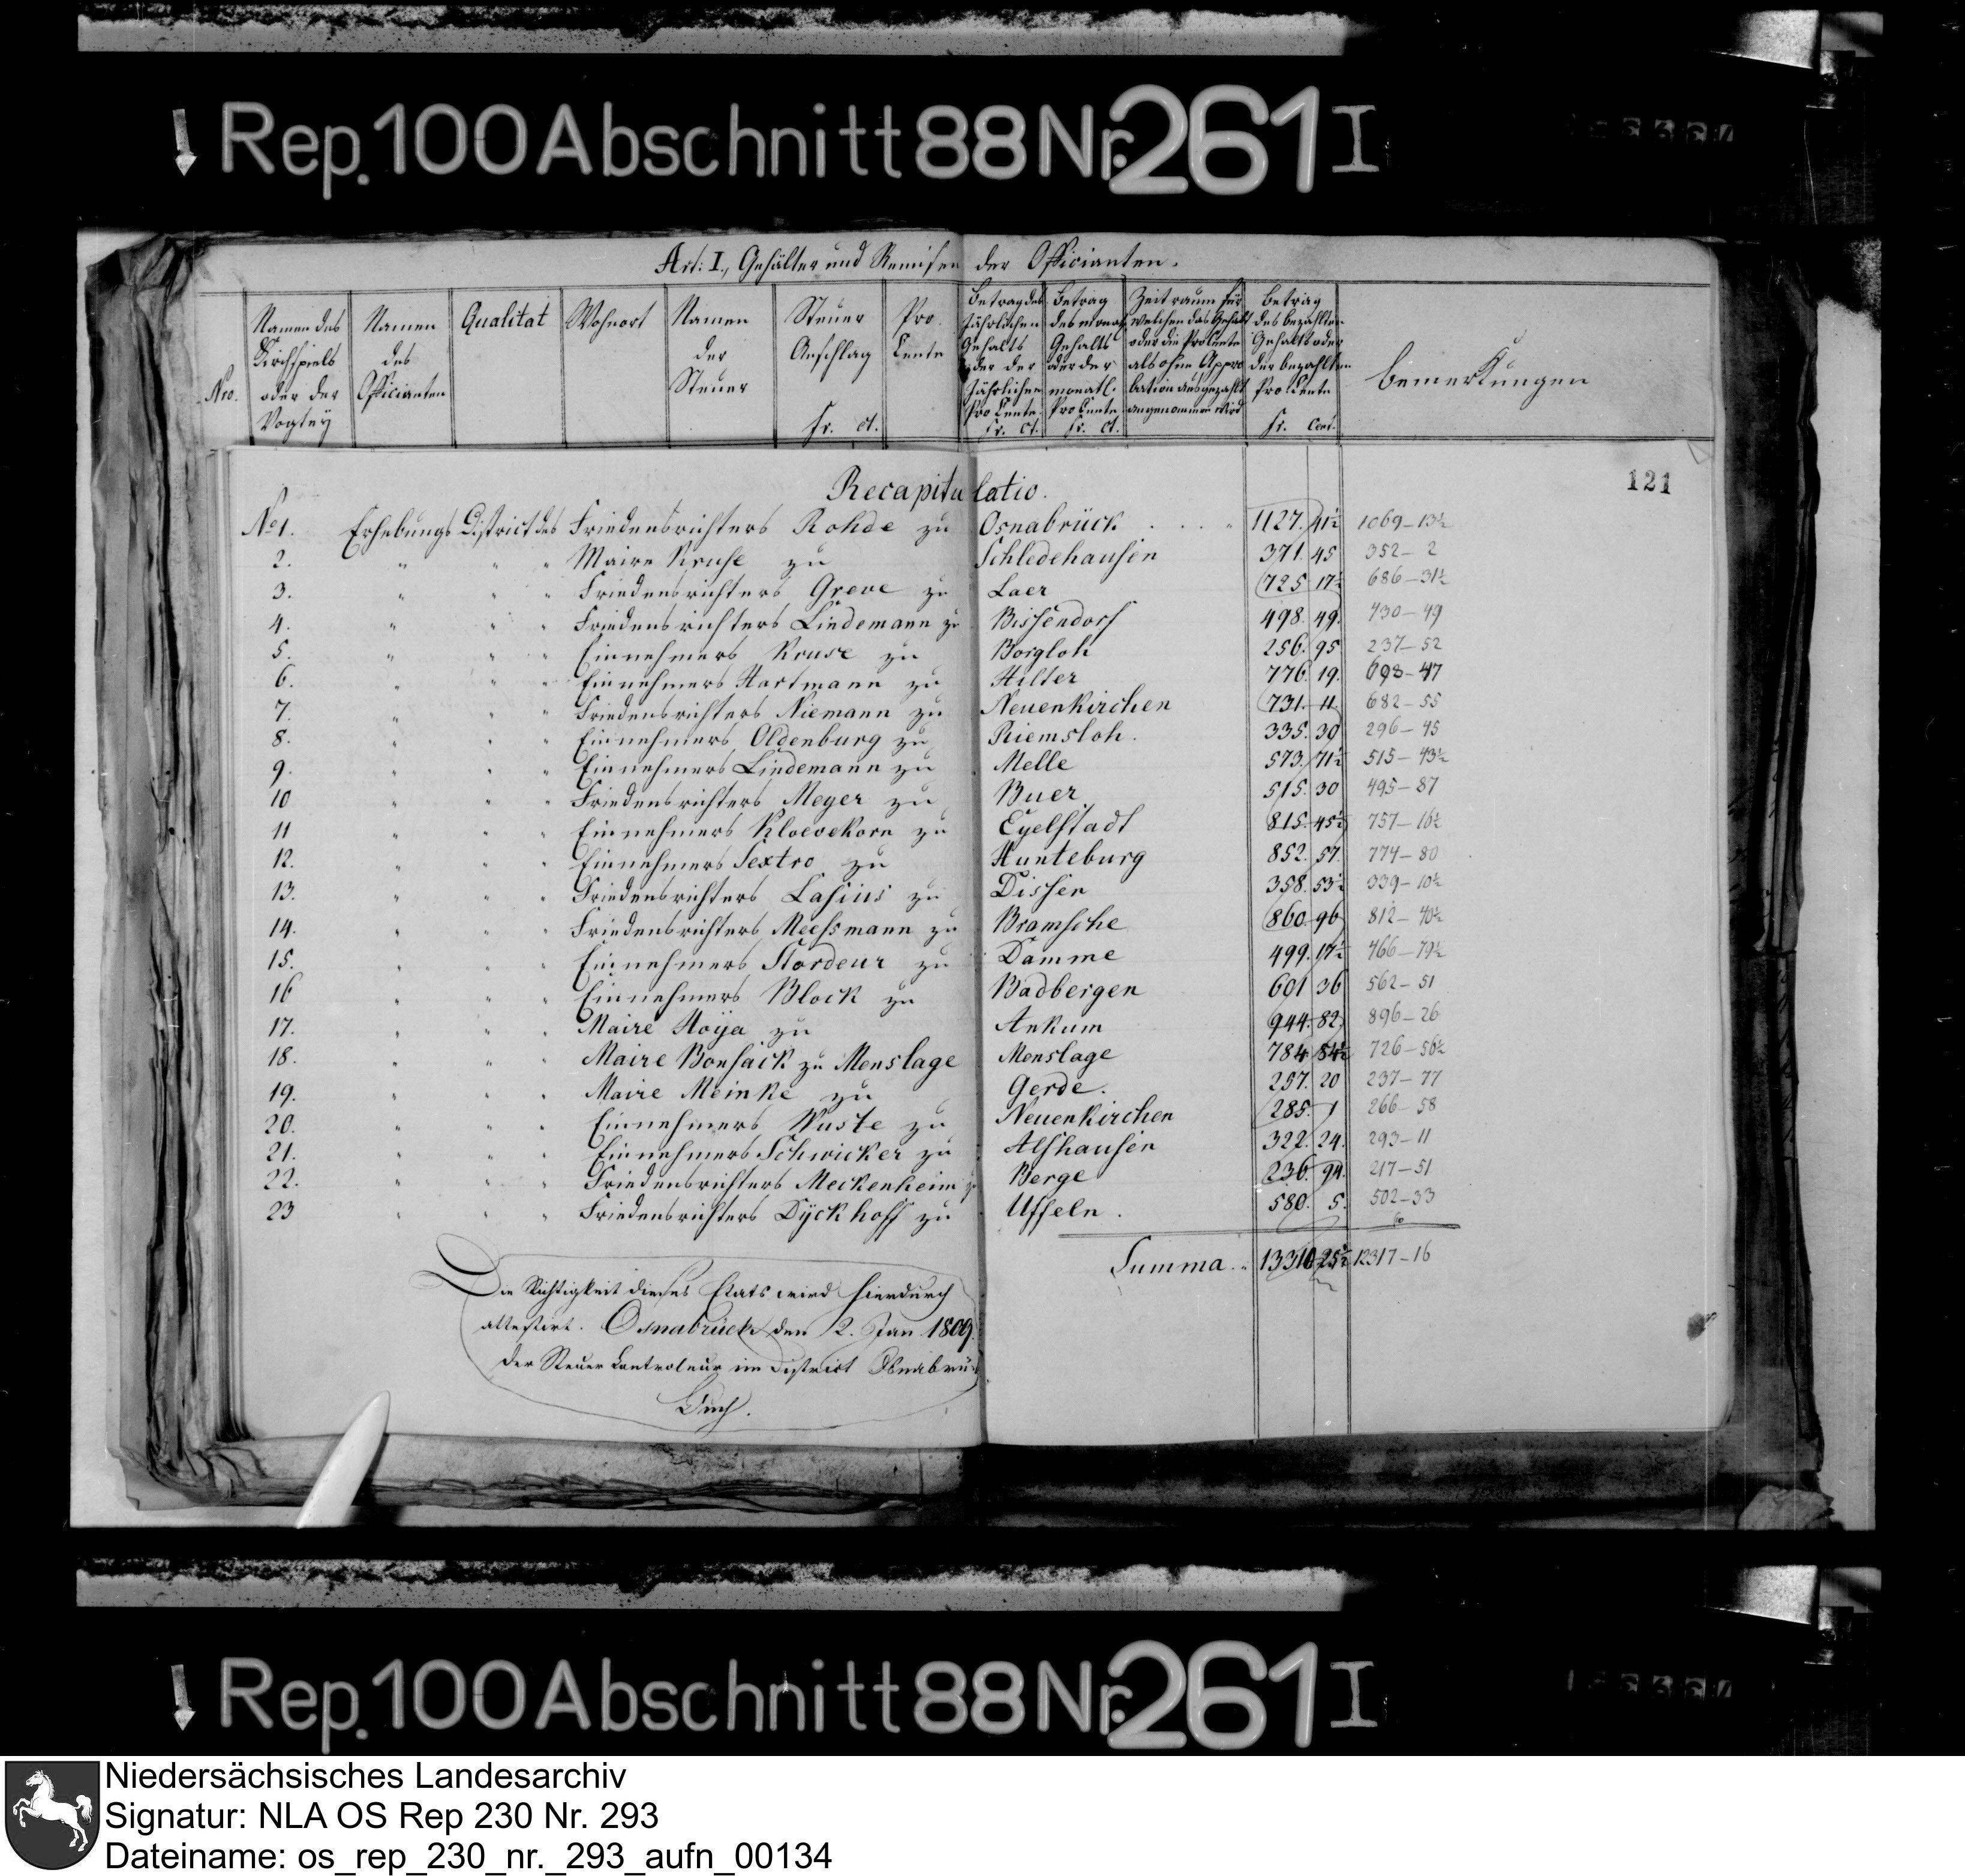 Rep. 100 Abschnitt 88 Nr. 261 I
Art: I, Gehälter und Remisen der Officianten.
Nro.
Namen des Kirchspiels oder der Vogtey
Namen des Officianten
Qualitat
Wohnort
Namen der Steuer
Steuer Anschlag fr. ct.
Pro Cente
Betrag des Jährlichen Gehalts oder der Jährlichen Pro Cente fr. ct.
Betrag des monatl. Gehalts oder der monatl. Pro Cente fr. ct.
Zeit raum für welchen das Gehalt oder die Pro Cente als ohne Appro bation ausgezahlt angenommen wird
Betrag des bezahlten Gehalts oder der bezahlten Pro Cente fr. Cent.
Bemerkungen
121
Recapitulatio.
No 1. Erhebungs District des Friedensrichters Rohde zu Osnabrück . . . . " 1127. 41½ 1069-13½
2. " " " Maire Kruse zu Schledehausen 371. 45 352-2
3. " " " Friedensrichters Greve zu Laer 725. 17½ 686-31½
4. " " " Friedensrichters Lindemann zu Bissendorf 498. 49. 430-49
5. " " " Einnehmers Kruse zu Borgloh 256. 95 237-52
6. " " " Einnehmers Hartmann zu Hilter 776. 19. 693-47
7. " " " Friedensrichters Niemann zu Neuenkirchen 731. 11 682-55
8. " " " Einnehmers Oldenburg zu Riemsloh. 335. 30 296-45
9. " " " Einnehmers Lindemann zu Melle 573. 71½ 515-43½
10 " " " Friedensrichters Meyer zu Buer 515. 30 495-87
11 " " " Einnehmers Kloevekorn zu Eyelstadt 815. 45½ 757-16½
12. " " " Einnehmers Sextro zu Hunteburg 852. 57. 774-80
13. " " " Friedensrichters Lasius zu Dissen 358. 53½ 339-10½
14. " " " Friedensrichters Meessmann zu Bramsche 860. 96 812-40½
15. " " " Einnehmers Stordeur zu Damme 499. 17½ 466-79½
16 " " " Einnehmers Block zu Badbergen 601 36 562-51
17. " " " Maire Hoÿa zu Ankum 944. 82. 896-26
18. " " " Maire Bonsack zu Menslage Menslage 784 54½ 726-56½
19. " " " Maire Meinke zu Gerde. 257. 20 237-77
20. " " " Einnehmers Wuste zu Neuenkirchen 285. 1 266-58
21. " " " Einnehmers Schwicker zu Alfhausen 322. 24. 293-11
22. " " " Friedensrichters Meckenheim zu Berge 236. 94. 217-51
23 " " " Friedensrichters Dÿckhoff zu Uffeln. 580. 5. 502-33
Summa . . 13310 25½ 12317-16
Die Richtigkeit dieses Etats wird hierdurch
attestirt. Osnabrück den 12. Jan 1809.
Der Steuer Controleur im District Osnabrück
Rep. 100 Abschnitt 88 Nr. 261 I
Niedersächsisches Landesarchiv
Signatur: NLA OS Rep 230 Nr. 293
Dateiname: os_rep_230_nr._293_aufn_00134